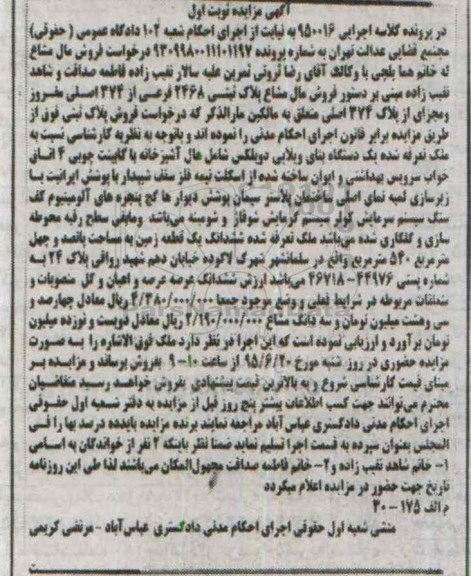 آگهی مزایده نوبت اول
در پرونده کلاسه اجرایی ۹۵۰۰۱۶ به نیابت از اجرای احکام شعبه ۱۰۲ دادگاه عمومی ( حقوقی)
مجتمع قضایی عدالت تهران به شماره پرونده ۹۳۰۹۹۸۰۰۱۱۱۰۱۱۹۷ درخواست فروش مال مشاع
له خانم هما یلچی با وکالت آقای رضا قزونی ثمرین علیه سالار نقیب زاده فاطمه صداقت و شاهد
نقیب زاده مبنی بر دستور فروش مال مشاع پلاک ثبتی ۲۴۶۸ فرعی از ۳۷۴ اصلی مفروز
ومجزای از پلاک ۳۷۴ اصلی متعلق به مالکین مارالذکر که درخواست فروش پلاک ثبتی فوق از
طریق مزایده برابر قانون اجرای احکام مدنی را نموده اند و باتوجه به نظریه کارشناسی نسبت به
ملک تعرفه شده یک دستگاه بنای ویلایی دوبلکس شامل هال آشپزخانه با کابینت چوبی ۴ اتاق
خواب سرویس بهداشتی و ایوان ساخته شده از اسکلت نیمه فلز سقف شیبدار با پوشش ایرانیت با
زیرسازی لمبه نمای اصلی ساختمان پلاستر سیمان پوشش دیوار ها گچ پنجره های آلومینیوم کف
سنگ سیستم سرمایش کولر سیستم گرمایش شوفاژ و شومینه می‌باشد ومابقی سطح رقبه محوطه
سازی و گلکاری شده می‌باشد ملک تعرفه شده ششدانگ یک قطعه زمین به مساحت پانصد و چهل
مترمربع ۵۴۰ مترمربع واقع در سلمانشهر شهرک لاکوده خیابان دهم شهید رواقی پلاک ۲۴ به
شماره پستی ۴۴۹۷۶-۴۶۷۱۸ می‌باشد ارزش ششدانگ عرصه عرصه و اعیان و کل منصوبات و
متعلقات مربوطه در شرایط فعلی و وضع موجود جمعا ۴/۳۸۰/۰۰۰/۰۰۰ ریال معادل چهارصد و
سی وهشت میلیون تومان و سه دانگ مشاع ۲/۱۹۰/۰۰۰/۰۰۰ ریال معادل دویست و نوزده میلیون
تومان برآورد و ارزیابی نموده است که این اجرا در نظر دارد ملک فوق الاشاره را به صورت
مزایده حضوری در روز شنبه مورخ ۹۵/۶/۲۰ از ساعت ۱۰-۹ بفروش برساند و مزایده بر
مبنای قیمت کارشناسی شروع و به بالاترین قیمت پیشنهادی بفروش خواهد رسید متقاضیان
محترم می‌توانند جهت کسب اطلاعات بیشتر پنج روز قبل از مزایده به دفتر شعبه اول حقوقی
اجرای احکام مدنی دادگستری عباس آباد مراجعه نمایند برنده مزایده بایدده درصد بها را فی
المجلس بعنوان سپرده به قسمت اجرا تسلیم نماید ضمنا نظر باینکه ۲ نفر از خواندگان به اسامی
۱- خانم شاهد نقیب زاده و ۲- خانم فاطمه صداقت مجهول‌المکان می‌باشند لذا طی این روزنامه
تاریخ جهت حضور در مزایده اعلام میگردد
م الف ۱۷۵ - ۳۰
منشی شعبه اول حقوقی اجرای احکام مدنی دادگستری عباس‌آباد - مرتضی کریمی